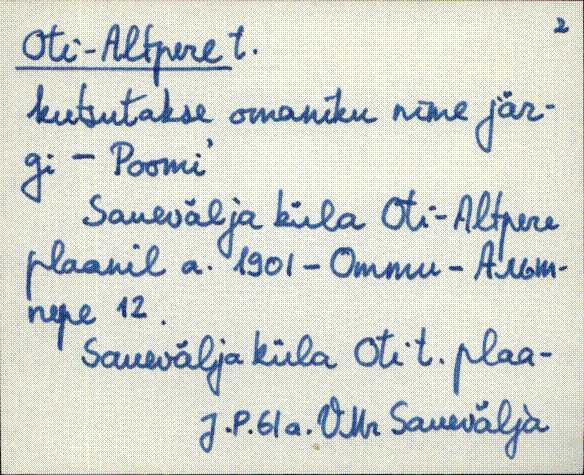 2
Oti-Altpere t.
kutsutakse omaniku nime jär-
gi - Poomi'
Sauevälja küla Oti-Altpere
plaanil a. 1901 - Ommu - Альт-
пере 12.
Sauevälja küla Oti t. plaa-
J.P. 61 a. VMr Sauevälja